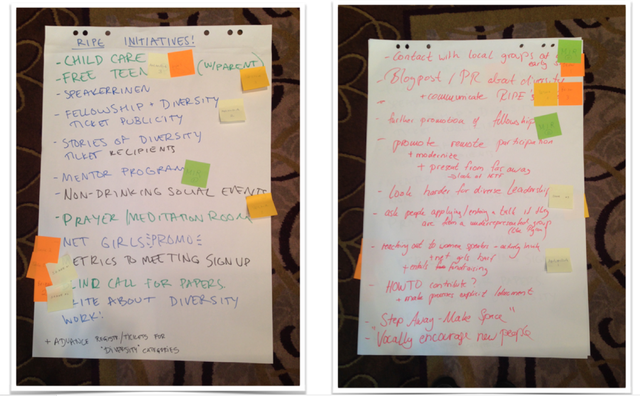 RIPE INITIATIVES!
- CHILD CARE
- FREE TEEN (W/PARENT)
- SPEAKERINNEN
- FELLOWSHIP + DIVERSITY
TICKET PUBLICITY
- STORIES OF DIVERSITY
TICKET RECIPIENTS
- MENTOR PROGRAM
- NON-DRINKING SOCIAL EVENTS
- PRAYER/MEDITATION ROOM
NET GIRLS PROMO
METRICS TO MEETING SIGN UP
BLIND CALL FOR PAPERS
DIVERSITY
WORK!
+ ADVANCE FOR
"DIVERSITY" CATEGORIES
- Contact with local groups
early
- Blogpost / PR about diversity
+ communicate RIPE
- further promotion of fellowship
- promote remote participation
+ modernize
+ present from far away
- Look harder for diverse leadership
- ask people applying/entering a talk if they
are from a underrepresented group
- reaching out to women
+ net girls
+ fundraising
- HOWTO contribute?
+ make process explicit
- "Step Away - Make Space"
- Vocally encourage new people